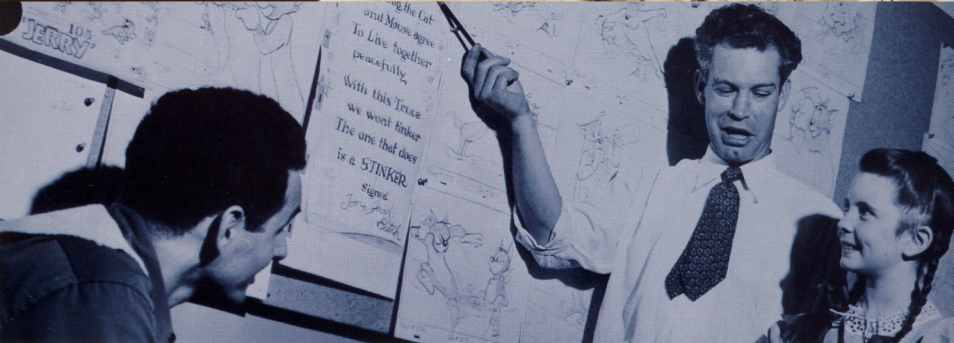 105
JERRY
the Cat
and Mouse agree
To Live together
peacefully.
With this Truce
we wont tinker
The one that does
is a STINKER
signed